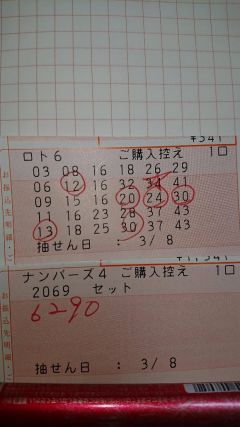 ¥341
ロト6 ご購入控え 1口
03 08 16 18 26 29
06 12 16 32 34 41
09 15 16 20 24 30
11 16 23 28 37 43
13 18 25 30 37 43
抽せん日 : 3/ 8
お振込先明細
¥1,341
ナンバーズ4 ご購入控え 1口
2069 セット
6290
抽せん日 : 3/ 8
お振込先明細